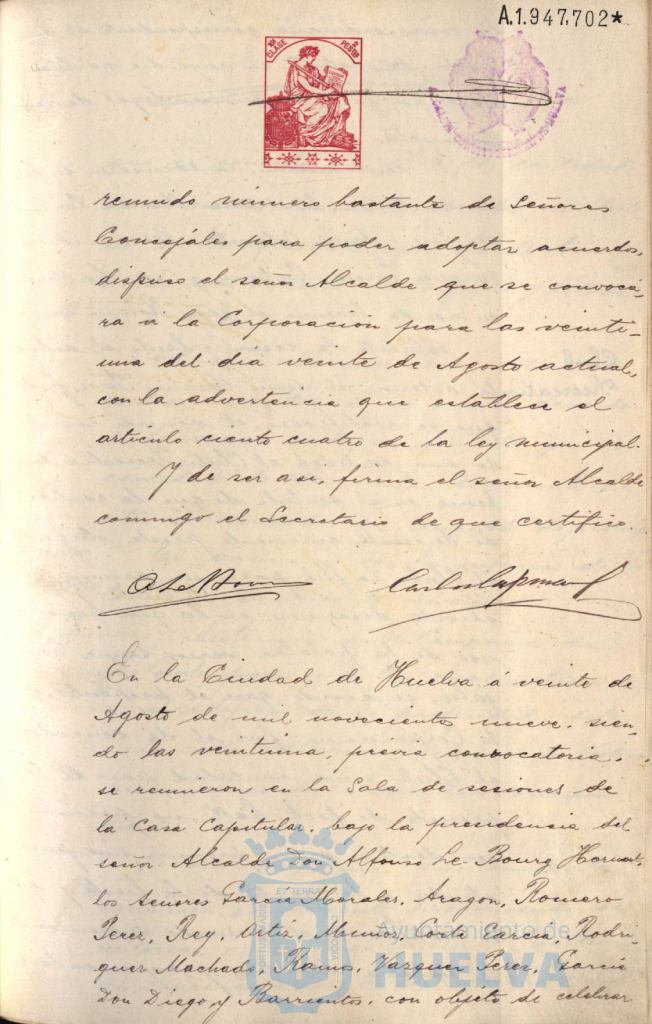 A.1.947.702*
10ª CLASE
2 PESTAS
reunido número bastante de Señores
Concejáles para poder adoptar acuerdos,
dispuso el señor Alcalde que se convocá-
ra á la Corporación para las veinti-
una del dia veinte de Agosto actual,
con la advertencia que establece el
artículo ciento cuatro de la ley municipal.
Y de ser asi, firma el señor Alcalde
conmigo el Secretario de que certifico.
En la Ciudad de Huelva á veinte de
Agosto de mil novecientos nueve, sien-
do las veintiuna, prévia convocatoria,
se reunieron en la Sala de sesiones de
la Casa Capitular, bajo la presidencia del
señor Alcalde Don Alfonso Le-Bourg
los señores García Morales, Aragon, Romero
Perez, Rey, Ortiz, Muñoz, Corte García, Rodri-
guez Machado, Ramos, Vazquez Perez, García
Don Diego y Barrientos, con objeto de celebrar
Ayuntamiento de
HUELVA